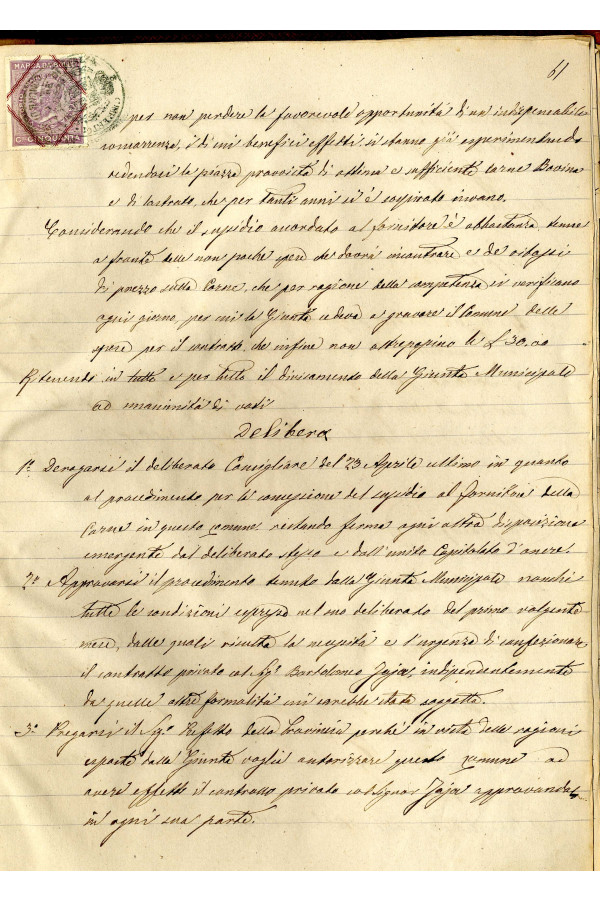 61
MARCA DA BOLLO
per non perdere la favorevole opportunità di un'indispensabile
concorrenza, i di cui benefici effetti si stanno già esperimentando
vedendosi la piazza provvista di ottima e sufficiente carne Bovina
e di Castrato, che per tanti anni si è sospirato invano.
Considerando che il sussidio accordato al fornitore è abbastanza tenue
a fronte delle non poche spese che dovrà incontrare e de' ribassi
di prezzo sulla Carne, che per ragione della competenza si verificano
ogni giorno, per cui la Giunta cedeva a gravare il Comune delle
spese per il contratto, che infine non oltrepassino le £ 30,00
Ritenendo in tutto e per tutto il divisamento della Giunta Municipale
ad unanimità di voti
Delibera
1º Derogarsi il deliberato Consigliare del 23 Aprile ultimo in quanto
al procedimento per la concessione del sussidio al fornitore della
Carne in questo comune restando ferma ogni altra disposizione
emergente dal deliberato stesso e dall'unito Capitolato d'onere.
2º Approvarsi il procedimento tenuto dalla Giunta Municipale nonchè
tutte le condizioni espresse nel suo deliberato del primo volgente
mese, dalle quali risulta la necessità e l'urgenza di confezionare
il contratto privato col Sigr Bartolomeo Jaja, indipendentemente
da quelle altre formalità cui sarebbe stato soggetto.
3º Pregarsi il Sigr Prefetto della Provincia perchè in vista delle ragioni
esposte dalla Giunta voglia autorizzare questo comune ad
avere effetto il contratto privato col Signor Jaja approvandolo
in ogni sua parte.